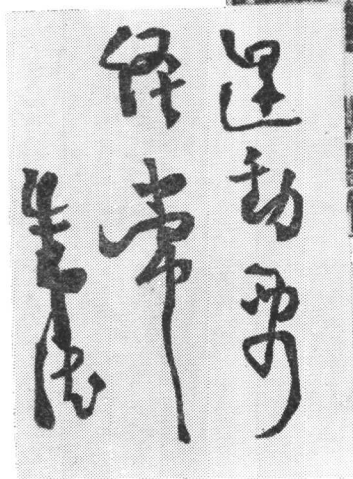 運動要
經常
朱德